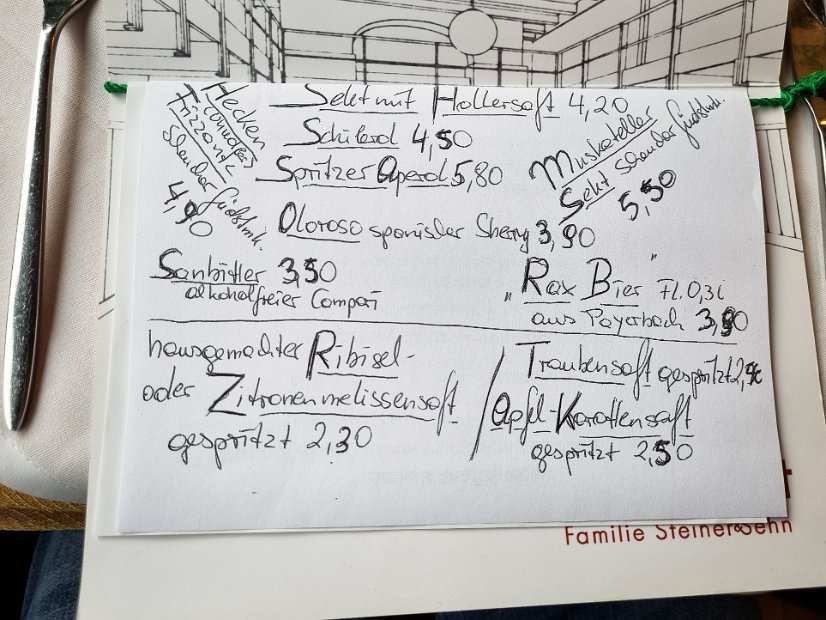 Hecken
Frizzante
4,90
Sekt mit Hollersaft 4,20
Schilerol 4,50
Spritzer Aperol 5,80
Muskateller
Sekt
5,50
Oloroso spanischer Sherry 3,90
Sanbittler 3,50
alkoholfreier Campari
"Rax Bier" Fl. 0,3l
aus Payerbach 3,90
hausgemachter Ribisel-
oder Zitronenmelissensaft
gespritzt 2,30
Traubensaft gespritzt
Apfel-Karottensaft
gespritzt 2,50
Familie Steiner